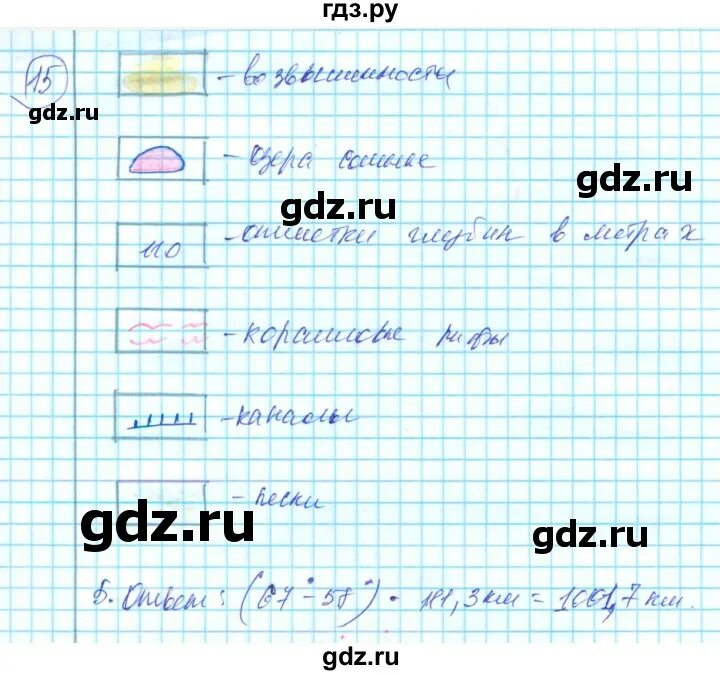 гдз.ру
15
- возвышенности
gdz.ru
- озера соленые
gdz.ru
gdz.ru
110
- отметки глубин в метрах
- коралловые рифы
- каналы
- пески
gdz.ru
gdz.ru
Б. Ответ: (67° - 58°) · 111,3 км = 1001,7 км.
gdz.ru